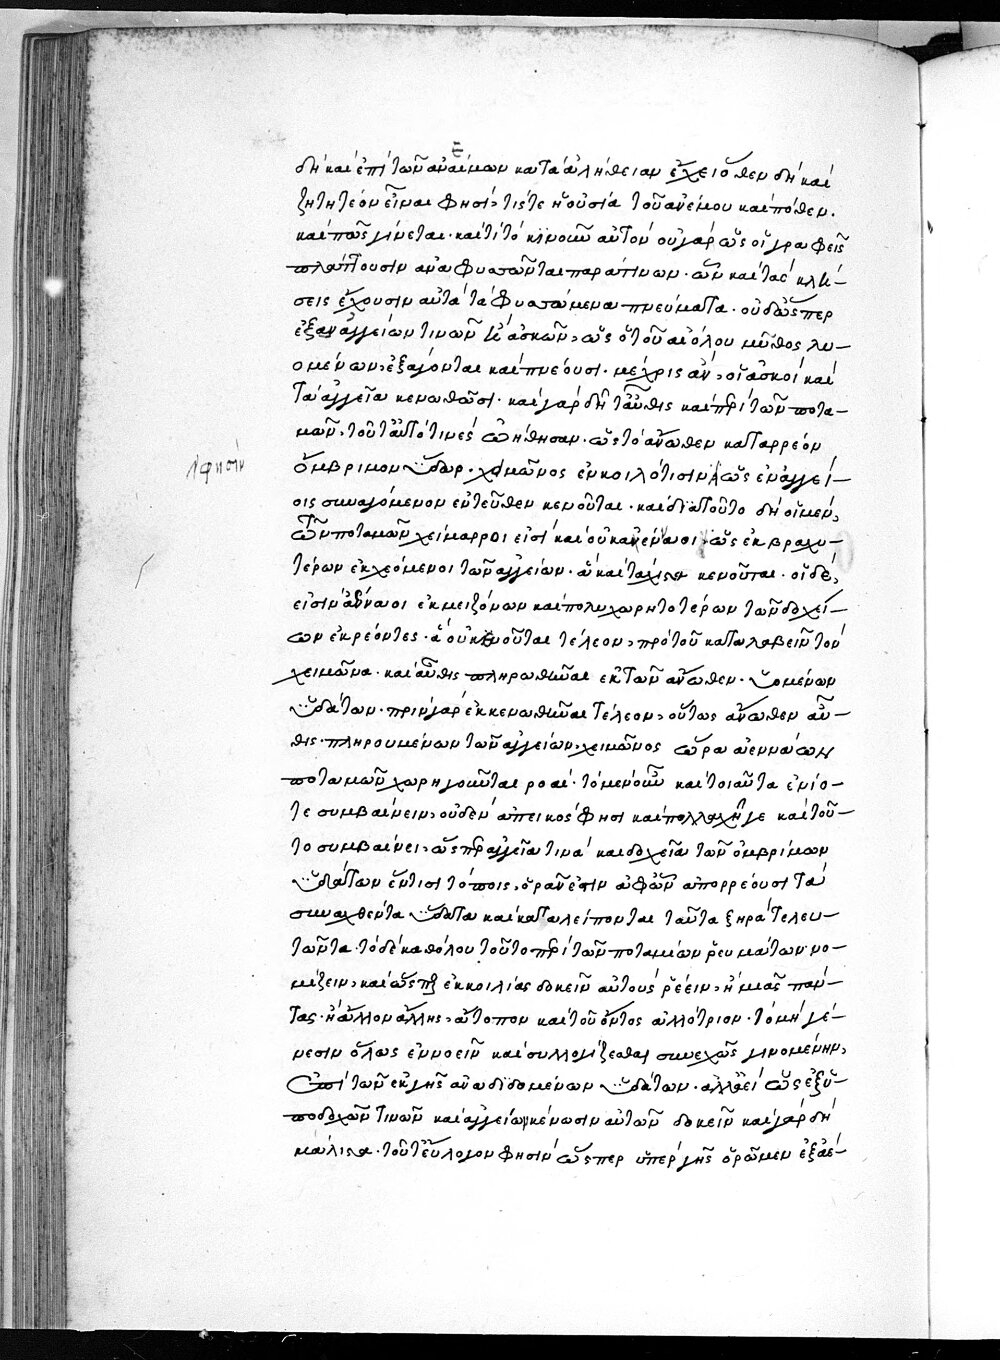 δὴ καὶ ἐπὶ τῶν ἀνέμων κατὰ ἀλήθειαν ἔχει ὅθεν δὴ καὶ
ζητητέον εἶναι φησὶ, τίς τε ἡ οὐσία τοῦ ἀνέμου καὶ πόθεν.
καὶ πῶς γίνεται. καὶ τί τὸ κινοῦν αὐτόν οὐ γὰρ ὡς οἱ γραφεῖς
πλάττουσιν ἀναφυσῶνται παρά τινων. ὧν καὶ τὰς κλή-
σεις ἔχουσιν αὐτὰ τὰ φυσώμενα πνεύματα. οὐδ' ὥσπερ
ἐξ ἀγγείων τινῶν ἀσκῶν, ὡς ὁ τοῦ αἰόλου μῦθος λυ-
ομένων, ἐξάγονται καὶ πνέουσι. μέχρις ἂν, οἱ ἀσκοὶ καὶ
τὰ ἀγγεῖα κενωθῶσι. καὶ γὰρ δὴ ταῦθις καὶ περὶ τῶν ποτα-
μῶν. τοῦτ' αὐτό τινες ᾠήθησαν. ὡς τὸ ἄνωθεν καταρρέον
ὄμβριμον ὕδωρ. χειμῶνος ἐν κοιλότισιν ὡς ἐν ἀγγεί-
φησιν
οις συναγόμενον ἐντεῦθεν κενοῦται. καὶ διὰ τοῦτο δὴ οἱ μὲν,
τῶν ποταμῶν χείμαρροι εἰσὶ καὶ οὐκ ἀένναοι, ὡς ἐκ βραχυ-
τέρων ἐκχεόμενοι τῶν ἀγγείων. ἃ καὶ τάχιστα κενοῦται. οἱ δὲ,
εἰσὶν ἀένναοι ἐκ μειζόνων καὶ πολυχωρητοτέρων τῶν δοχεί-
ων ἐκρέοντες. ἃ οὐ κενοῦται τέλεον, πρὸ τοῦ καταλαβεῖν τὸν
χειμῶνα. καὶ αὖθις πληρωθῆναι ἐκ τῶν ἄνωθεν. ὑομένων
ὑδάτων. πρὶν γὰρ ἐκκενωθῆναι τέλεον, οὕτως ἄνωθεν αὖ-
θις πληρουμένων τῶν ἀγγείων, χειμῶνος ὥρᾳ ἀεννάων
ποταμῶν χωρηγοῦνται ροαί. τὸ μὲν οὖν καὶ τοιαῦτα ἐνίο-
τε συμβαίνειν, οὐδὲν ἀπεικός φησι καὶ πολλαχῇ γε καὶ τοῦ-
το συμβαίνει, ὥσπερ ἀγγεῖα τινὰ καὶ δοχεῖα τῶν ὀμβρίμων
ὑδάτων ἔν τισι τόποις, ὁρᾶν ἐστιν ἀφ' ὧν ἀπορρέουσι τὰ
συναχθέντα ὕδατα καὶ καταλείπονται ταῦτα ξηρὰ τελευ-
τῶντα. τὸ δὲ καθόλου τοῦτο περὶ τῶν ποταμίων ῥευμάτων νο-
μίζειν, καὶ ὥσπερ ἐκ κοιλίας δοκεῖν αὐτοὺς ῥέειν, ἢ μιᾶς πάν-
τας. ἢ ἄλλον ἄλλης, ἄτοπον καὶ τοῦ ὄντος ἀλλότριον. τὸ μὴ γέ-
νεσιν ὅλως ἐννοεῖν καὶ συλλογίζεσθαι συνεχῶς γινομένην,
ἐπὶ τῶν ἐκ γῆς ἀναδιδομένων ὑδάτων. ἀλλ' ἀεὶ ὡς ἐξ ὑ-
ποδοχῶν τινῶν καὶ ἀγγείων κένωσιν αὐτῶν δοκεῖν καὶ γὰρ δὴ
μάλιστα. τοῦτ' εὔλογον φησὶν ὥσπερ ὑπὲρ γῆς ὁρῶμεν ἐξ ἀέ-